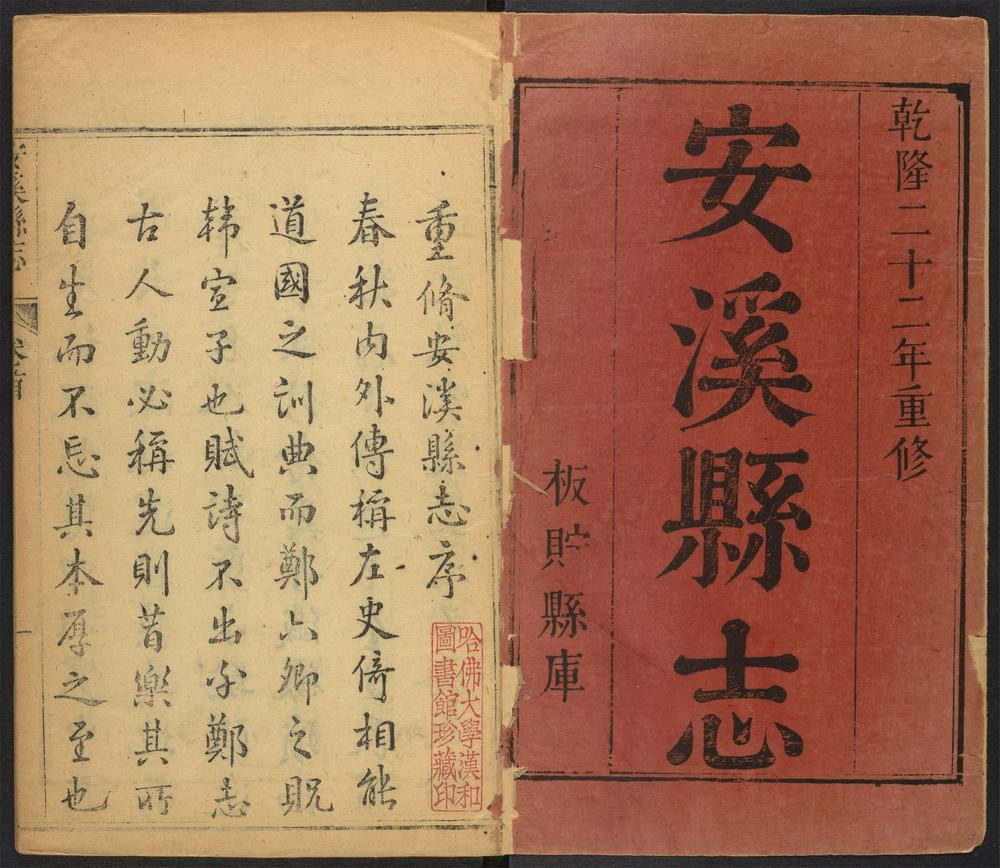 乾隆二十二年重修
安溪縣志
板貯縣庫
重脩安溪縣志序
春秋內外傳稱左史倚相能
道國之訓典而鄭六卿之貺
韩宣子也賦詩不出乎鄭志
古人動必稱先則昔樂其所
自生而不忘其本厚之至也
安溪縣志
卷首
一
哈佛大學漢和
圖書館珍藏印